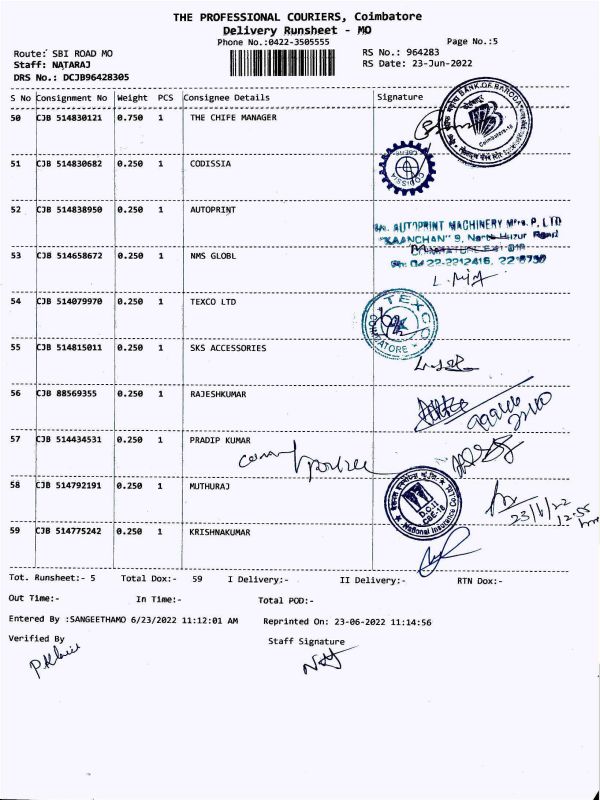 THE PROFESSIONAL COURIERS, Coimbatore
Delivery Runsheet - MO
Phone No.:0422-3505555
Page No.:5
Route: SBI ROAD MO
RS No.: 964283
Staff: NATARAJ
RS Date: 23-Jun-2022
DRS No.: DCJB96428305
S No Consignment No Weight PCS Consignee Details Signature
50 CJB 514830121 0.750 1 THE CHIFE MANAGER
BANK OF BARODA
Coimbatore-18
51 CJB 514830682 0.250 1 CODISSIA
CODISSIA
52 CJB 514838950 0.250 1 AUTOPRINT
AUTOPRINT MACHINERY Mfrs. P. LTD
"KAANCHAN" 9, North Huzur Road
53 CJB 514658672 0.250 1 NMS GLOBL
54 CJB 514079970 0.250 1 TEXCO LTD
TEXCO
COIMBATORE
55 CJB 514815011 0.250 1 SKS ACCESSORIES
56 CJB 88569355 0.250 1 RAJESHKUMAR
57 CJB 514434531 0.250 1 PRADIP KUMAR
58 CJB 514792191 0.250 1 MUTHURAJ
National Insurance Co
D.O.I
CBE-18
23/6/22
12:55
59 CJB 514775242 0.250 1 KRISHNAKUMAR
Tot. Runsheet:- 5 Total Dox:- 59 I Delivery:- II Delivery:- RTN Dox:-
Out Time:- In Time:- Total POD:-
Entered By :SANGEETHAMO 6/23/2022 11:12:01 AM Reprinted On: 23-06-2022 11:14:56
Verified By Staff Signature